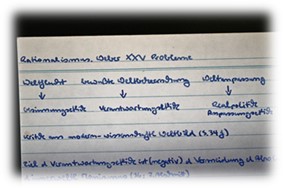 Rationalismus. Weber XXV Probleme
Weltflucht bewußte Weltbeherrschung Weltanpassung
↓ ↓ ↓
Gesinnungsethik Verantwortungsethik Realpolitik
Anpassungsethik
Kritik am modern-wissenschaftl Weltbild (S. 74f)
Ziel d Verantwortungsethik ist (negativ) d Vermeidung d